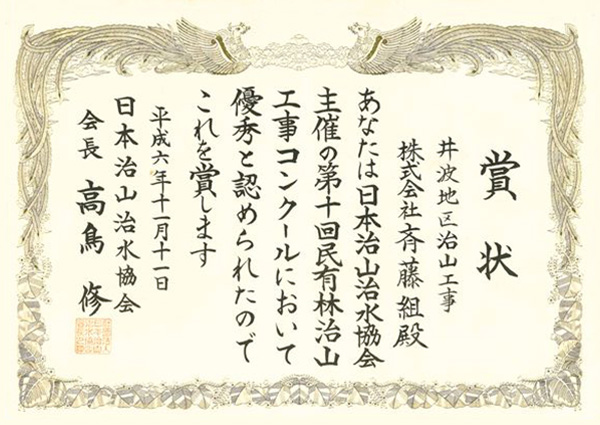 賞状
井波地区治山工事
株式会社斉藤組殿
あなたは日本治山治水協会
主催の第十回民有林治山
工事コンクールにおいて
優秀と認められたので
これを賞します
平成六年十一月十一日
日本治山治水協会
会長 高鳥 修